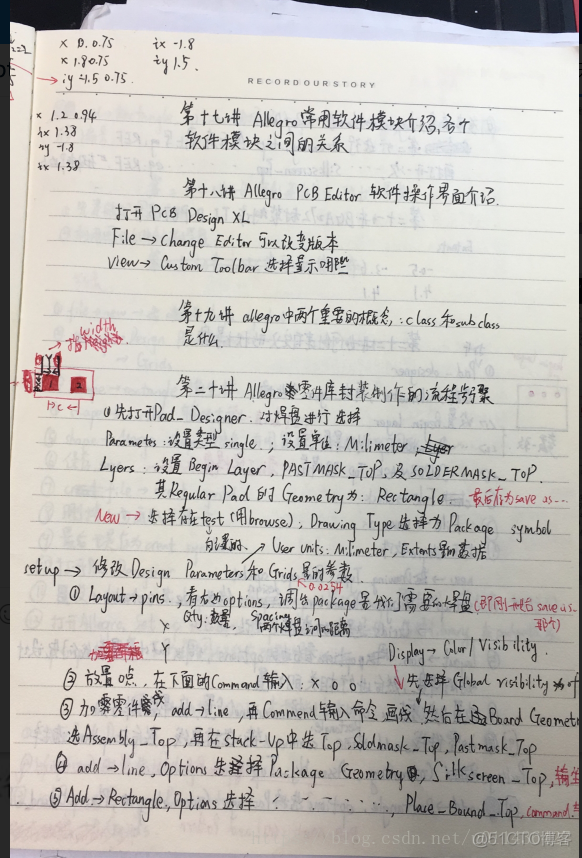 x 0.0.75 ix -1.8
x 1.8 0.75 iy 1.5.
iy -1.5 0.75.
RECORD OUR STORY
x 1.2 0.94
ix 1.38
iy -1.8
ix 1.38
第十七讲 Allegro常用软件模块介绍,各个
软件模块之间的关系
第十八讲 Allegro PCB Editor 软件操作界面介绍.
打开 PCB Design XL
File → change Editor 可以改变版本
View → Custom Toolbar 选择显示哪些
第十九讲 allegro中两个重要的概念:class和subclass
是什么
width
第二十讲 Allegro零件库封装制作的流程步骤
①先打开Pad_Designer. 对焊盘进行选择
Parameter:设置类型 single. ;设置单位:Milimeter,
Lyers:设置Begin Layer, PASTMASK_TOP, 及 SOLDERMASK_TOP.
其Regular Pad 的 Geometry为: Rectangle. 最后存为save as...
New → 选择存在test(用browse), Drawing Type选择为Package symbol
User units: Milimeter, Extents里面数据
setup → 修改Design Parameters和Grids里的参数.
0.0254
① Layout → pins., 看右边options, 调出package是我们需要的焊盘(即刚刚 save as..
Qty:数量, Spacing 两个焊盘之间的距离 那个)
X
Y
Display → Color / Visibility.
② 放置0点, 在下面的Command输入: x 0 0 先选择Global visibility为of
③ 加零件线, add → line, 再Commend输入命令画线, 然后在Board Geomet
选Assembly_Top, 再在stack-Up中选Top, Soldmask_Top, Pastmask_Top
④ add → line, Options选择 Package Geometry, Silkscreen_Top,
⑤ Add → Rectangle, Options选择 ........, Place_Bound_Top. command
blog.csdn.net/
@51CTO博客